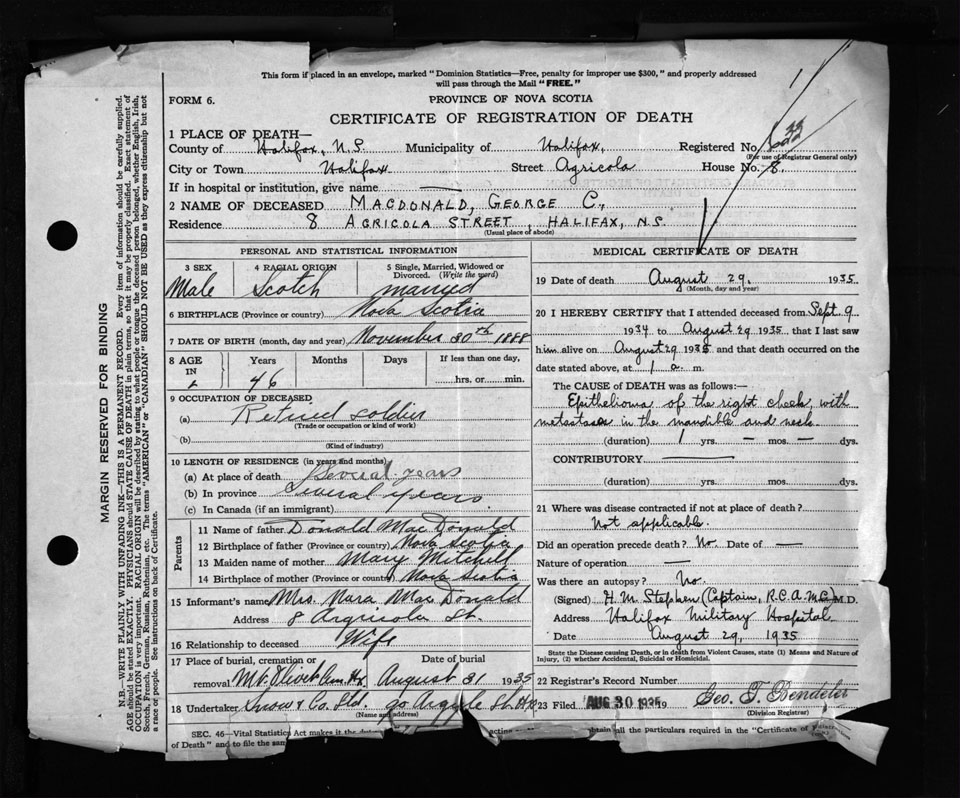 This form if placed in an envelope, marked "Dominion Statistics—Free, penalty for improper use $300," and properly addressed
will pass through the Mail "FREE."
FORM 6.
PROVINCE OF NOVA SCOTIA
CERTIFICATE OF REGISTRATION OF DEATH
1 PLACE OF DEATH—
County of Halifax, N.S. Municipality of Halifax, Registered No.
(For use of Registrar General only)
City or Town Halifax Street Agricola House No. 8.
If in hospital or institution, give name —
2 NAME OF DECEASED MACDONALD, GEORGE C.,
Residence 8 AGRICOLA STREET, HALIFAX, N.S.
(Usual place of abode)
PERSONAL AND STATISTICAL INFORMATION
3 SEX 4 RACIAL ORIGIN 5 Single, Married, Widowed or Divorced. (Write the word)
Male Scotch married
6 BIRTHPLACE (Province or country) Nova Scotia
7 DATE OF BIRTH (month, day and year) November 30th 1888
8 AGE IN Years Months Days If less than one day,
46 hrs. or min.
9 OCCUPATION OF DECEASED
(a) Retired soldier
(Trade or occupation or kind of work)
(b)
(Kind of industry)
10 LENGTH OF RESIDENCE (in years and months)
(a) At place of death Several years
(b) In province Several years.
(c) In Canada (if an immigrant)
Parents
11 Name of father Donald MacDonald
12 Birthplace of father (Province or country) Nova Scotia
13 Maiden name of mother Mary Mitchell
14 Birthplace of mother (Province or country) Nova Scotia
15 Informant's name Mrs. Nara MacDonald
Address 8 Argicola St.
16 Relationship to deceased Wife
17 Place of burial, cremation or removal Mt. Olivet Cem. Hx Date of burial August 31 1935
18 Undertaker Snow & Co. Ltd. 90 Argyle St. Hx
(Name and address)
MEDICAL CERTIFICATE OF DEATH
19 Date of death August 29, 1935
(Month, day and year)
20 I HEREBY CERTIFY that I attended deceased from Sept. 9
1934 to August 29 1935 that I last saw
him alive on August 29 1935 and that death occurred on the
date stated above, at 1 a. m.
The CAUSE OF DEATH was as follows:—
Epithelioma of the right cheek, with
metastases in the mandible and neck.
(duration) 1 yrs. — mos. — dys.
CONTRIBUTORY —
(duration) yrs. mos. dys.
21 Where was disease contracted if not at place of death?
Not applicable.
Did an operation precede death? No. Date of —
Nature of operation —
Was there an autopsy? No.
(Signed) H.M. Stephen (Captain, R.C.A.M.C.) M.D.
Address Halifax Military Hospital
Date August 29, 1935
State the Disease causing Death, or in death from Violent Causes, state (1) Means and Nature of
Injury, (2) whether Accidental, Suicidal or Homicidal.
22 Registrar's Record Number
23 Filed AUG 30 1935 19
(Division Registrar)
SEC. 46—Vital Statistics Act makes it the
of Death" and to file the sam
obtain all the particulars required in the "Certificate of
MARGIN RESERVED FOR BINDING
N.B.—WRITE PLAINLY WITH UNFADING INK—THIS IS A PERMANENT RECORD. Every item of information should be carefully supplied.
AGE should be stated EXACTLY. PHYSICIANS should STATE CAUSE OF DEATH in plain terms, so that it may be properly classified. Exact statement of
OCCUPATION is very important. RACIAL ORIGIN will be described by stating to what people or tongue the deceased person belonged, whether English, Irish,
Scotch, French, German, Russian, Ruthenian, etc. The terms "AMERICAN" or "CANADIAN" SHOULD NOT BE USED as they express citizenship but not
a race or people. See instructions on back of Certificate.